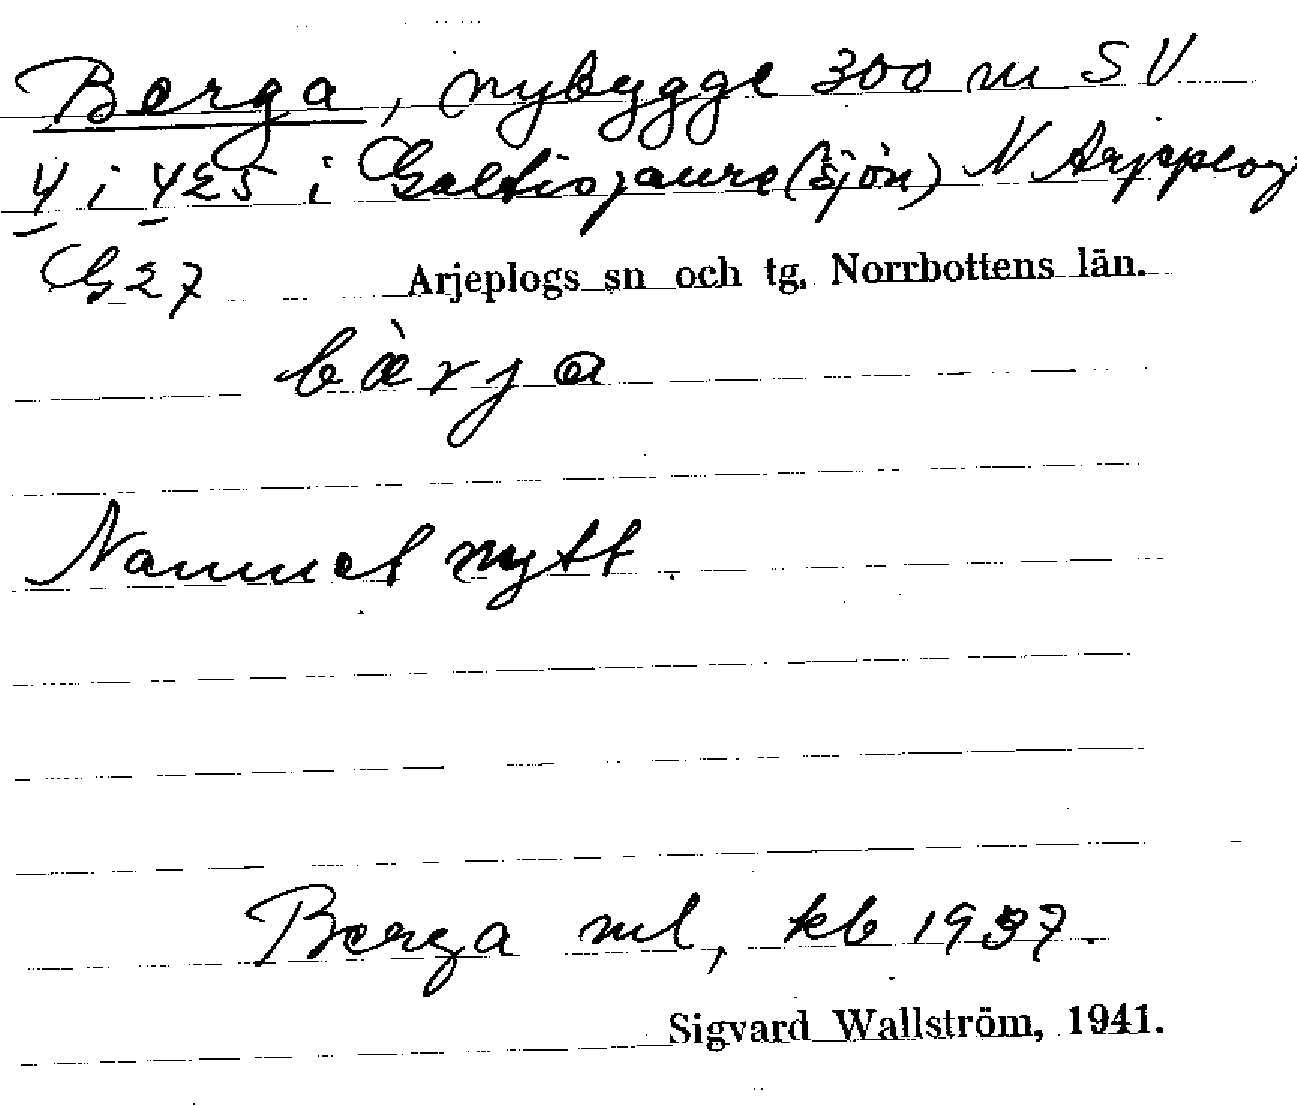 Berga, nybygge 300 m SV
4 i 425 i Galtisjaure (sjön) N Arjeplog
G27 Arjeplogs sn och tg. Norrbottens län.
bàrja
Namnet nytt.
Berga ml, kb 1937.
Sigvard Wallström, 1941.